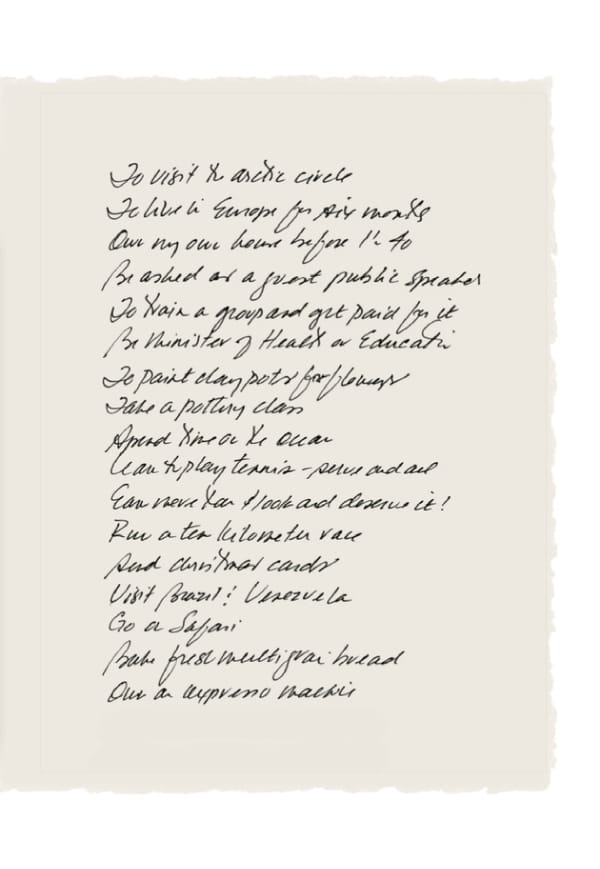 To visit the arctic circle
To live in Europe for six months
Own my own house before I'm 40
Be asked as a guest public speaker
To train a group and get paid for it
Be Minister of Health or Education
To paint clay pots for flowers
Take a pottery class
Spend time on the ocean
Learn to play tennis - serve and all
Earn more than $100k and deserve it!
Run a ten kilometer race
Send christmas cards
Visit Brazil & Venezuela
Go on Safari
Bake fresh multigrain bread
Own an expresso machine